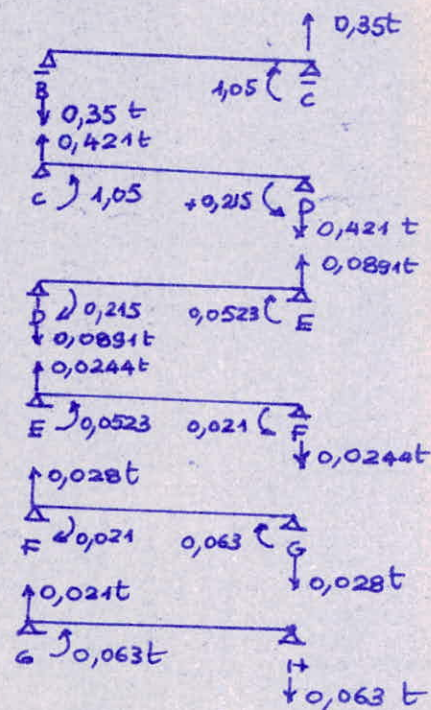 0,35t
1,05
B
C
0,35 t
0,421 t
C
1,05
+0,215
D
0,421 t
0,0891t
D
0,215
0,0523
E
0,0891t
0,0244t
E
0,0523
0,021
F
0,0244t
0,028t
F
0,021
0,063
G
0,028t
0,021t
G
0,063t
H
0,063 t